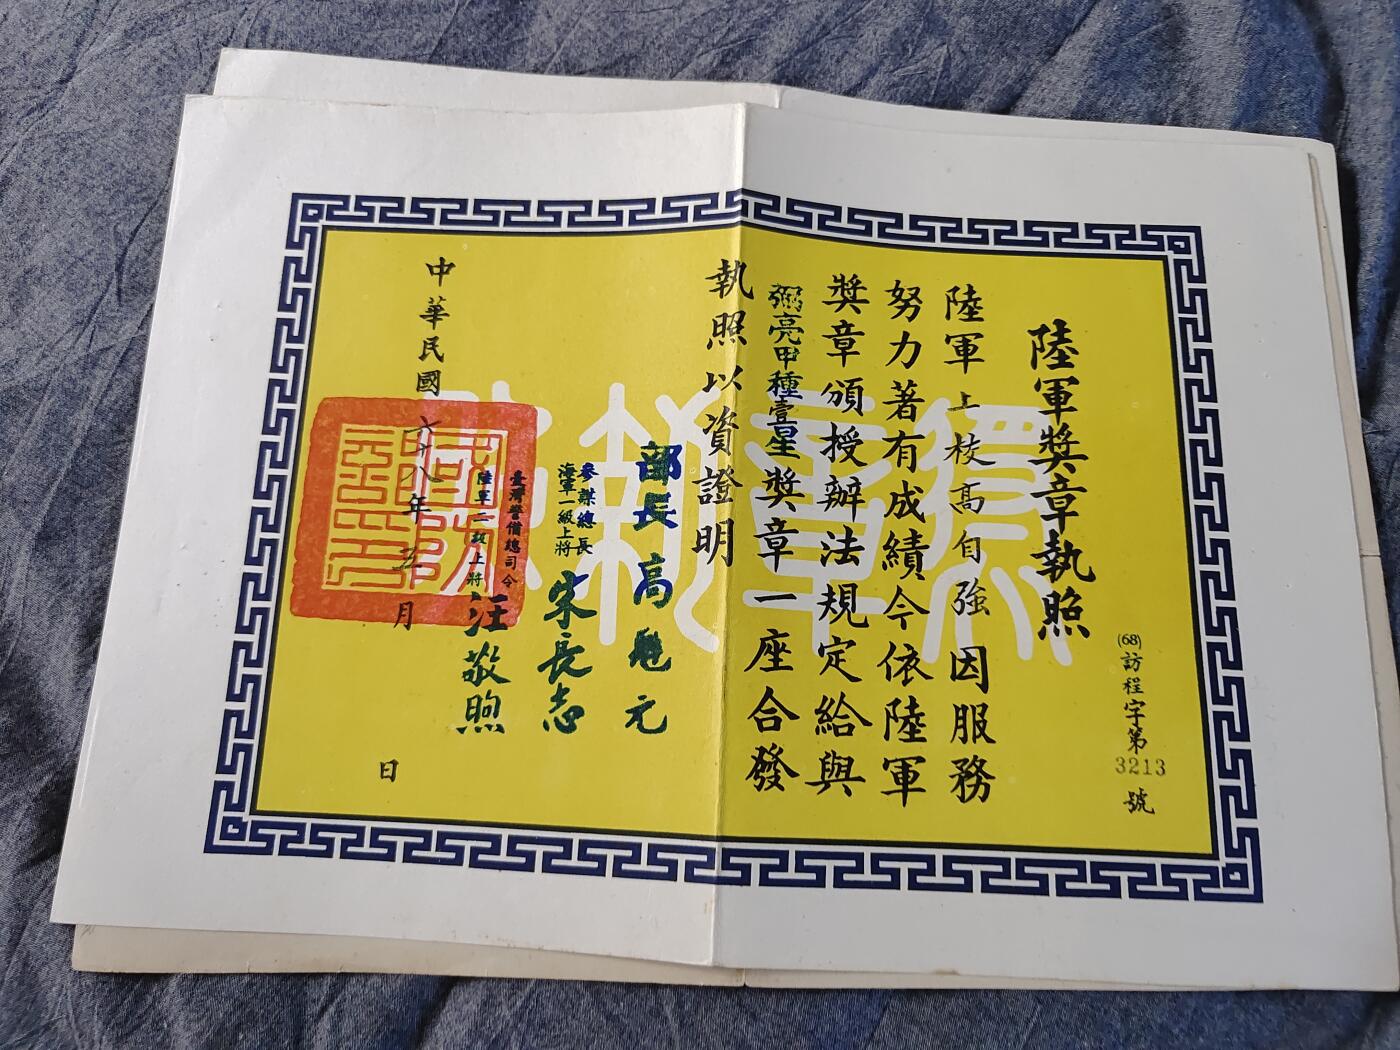 (68)訪程字第3213號
陸軍獎章執照
陸軍上校高自強因服務
努力著有成績今依陸軍
獎章頒授辦法規定給與
弼亮甲種壹星獎章一座合發
執照以資證明
部長高魁元
參謀總長
海軍一級上將
宋長志
臺灣警備總司令
陸軍二級上將
汪敬煦
中華民國六十八年五月 日